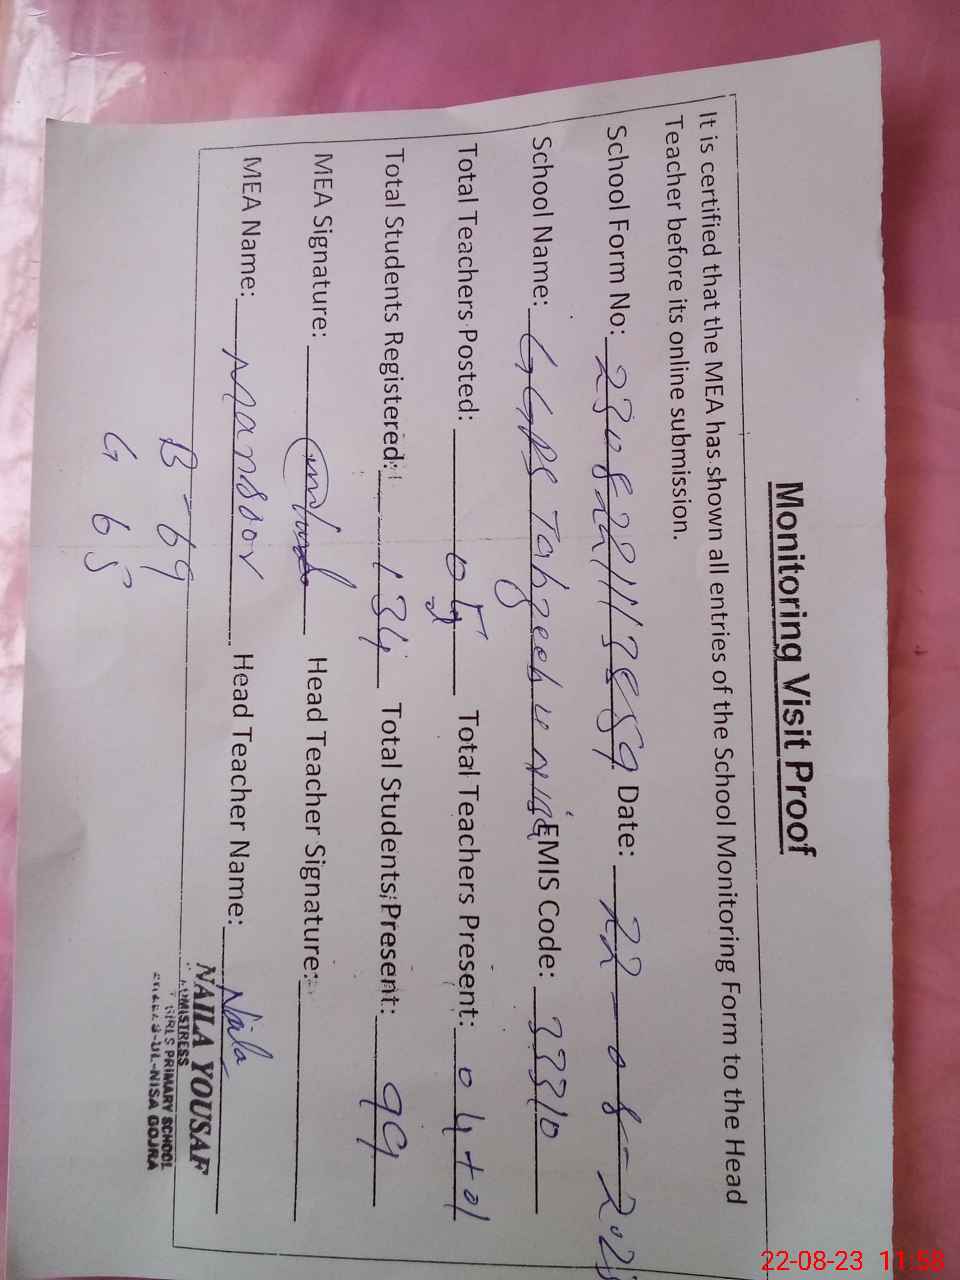 Monitoring Visit Proof
It is certified that the MEA has shown all entries of the School Monitoring Form to the Head
Teacher before its online submission.
School Form No: Date: 22-08-202
School Name: GGPS EMIS Code: 33310
Total Teachers Posted: 05 Total Teachers Present: 04+01
Total Students Registered: 134 Total Students Present: 99
MEA Signature: Head Teacher Signature:
MEA Name: Mansoor Head Teacher Name: Naila
NAILA YOUSAF
GIRLS PRIMARY SCHOOL
-UL-NISA GOJRA
B-69
G 65
22-08-23 11:58